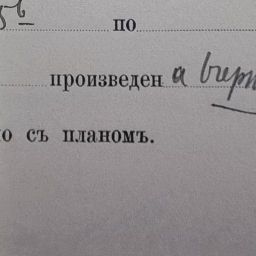 по
произведен а вчера
о съ планомъ.